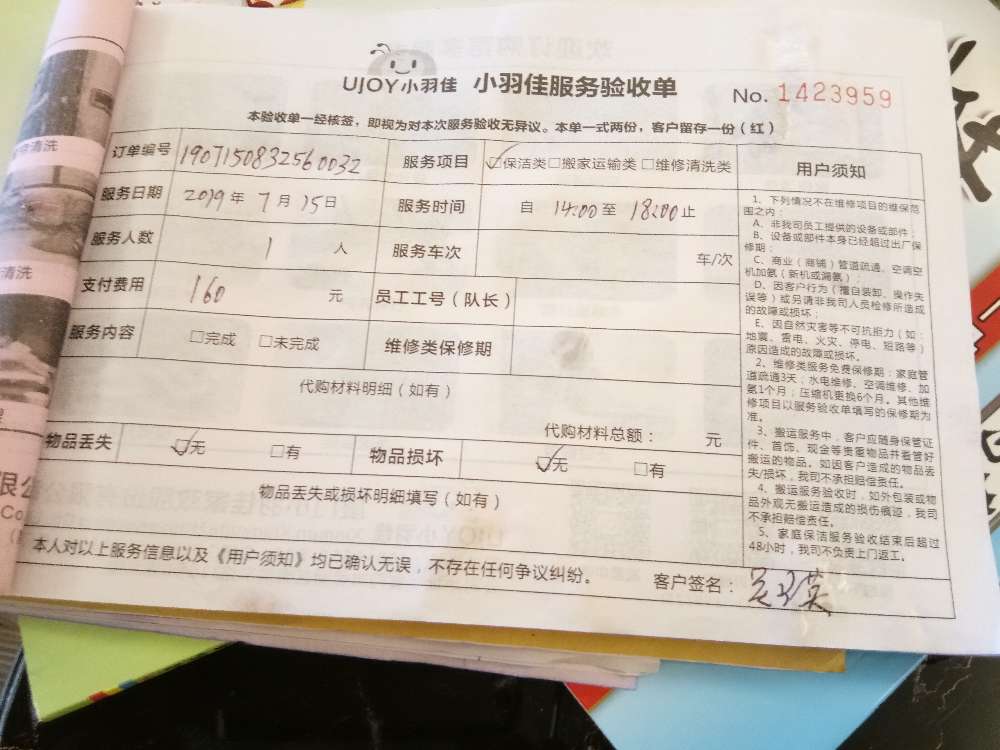 UJOY小羽佳 小羽佳服务验收单 No. 1423959
本验收单一经核签，即视为对本次服务验收无异议。本单一式两份，客户留存一份（红）
订单编号 1907150832560032 服务项目 ☑保洁类□搬家运输类□维修清洗类
服务日期 2019年7月15日 服务时间 自 14:00至 18:00止
服务人数 1 人 服务车次 车/次
支付费用 160 元 员工工号（队长）
服务内容 □完成 □未完成 维修类保修期
代购材料明细（如有）
代购材料总额： 元
物品丢失 ☑无 □有 物品损坏 ☑无 □有
物品丢失或损坏明细填写（如有）
本人对以上服务信息以及《用户须知》均已确认无误，不存在任何争议纠纷。 客户签名：
用户须知
1、下列情况不在维修项目的维保范
围之内：
A、非我司员工提供的设备或部件；
B、设备或部件本身已经超过出厂保
修期；
C、商业（商铺）管道疏通、空调空
机加氨（新机或漏氨）；
D、因客户行为（擅自装卸、操作失
误等）或另请非我司人员检修所造成
的故障或损坏；
E、因自然灾害等不可抗拒力（如：
地震、雷电、火灾、停电、短路等）
原因造成的故障或损坏。
2、维修类服务免费保修期：家庭管
道疏通3天；水电维修、空调维修、加
氨1个月；压缩机更换6个月。其他维
修项目以服务验收单填写的保修期为
准。
3、搬运服务中，客户应随身保管证
件、首饰、现金等贵重物品并看管好
搬运的物品。如因客户造成的物品丢
失/损坏，我司不承担赔偿责任。
4、搬运服务验收时，如外包装或物
品外观无搬运造成的损伤痕迹，我司
不承担赔偿责任。
5、家庭保洁服务验收结束后超过
48小时，我司不负责上门返工。
清洗
清洗
限公
Co